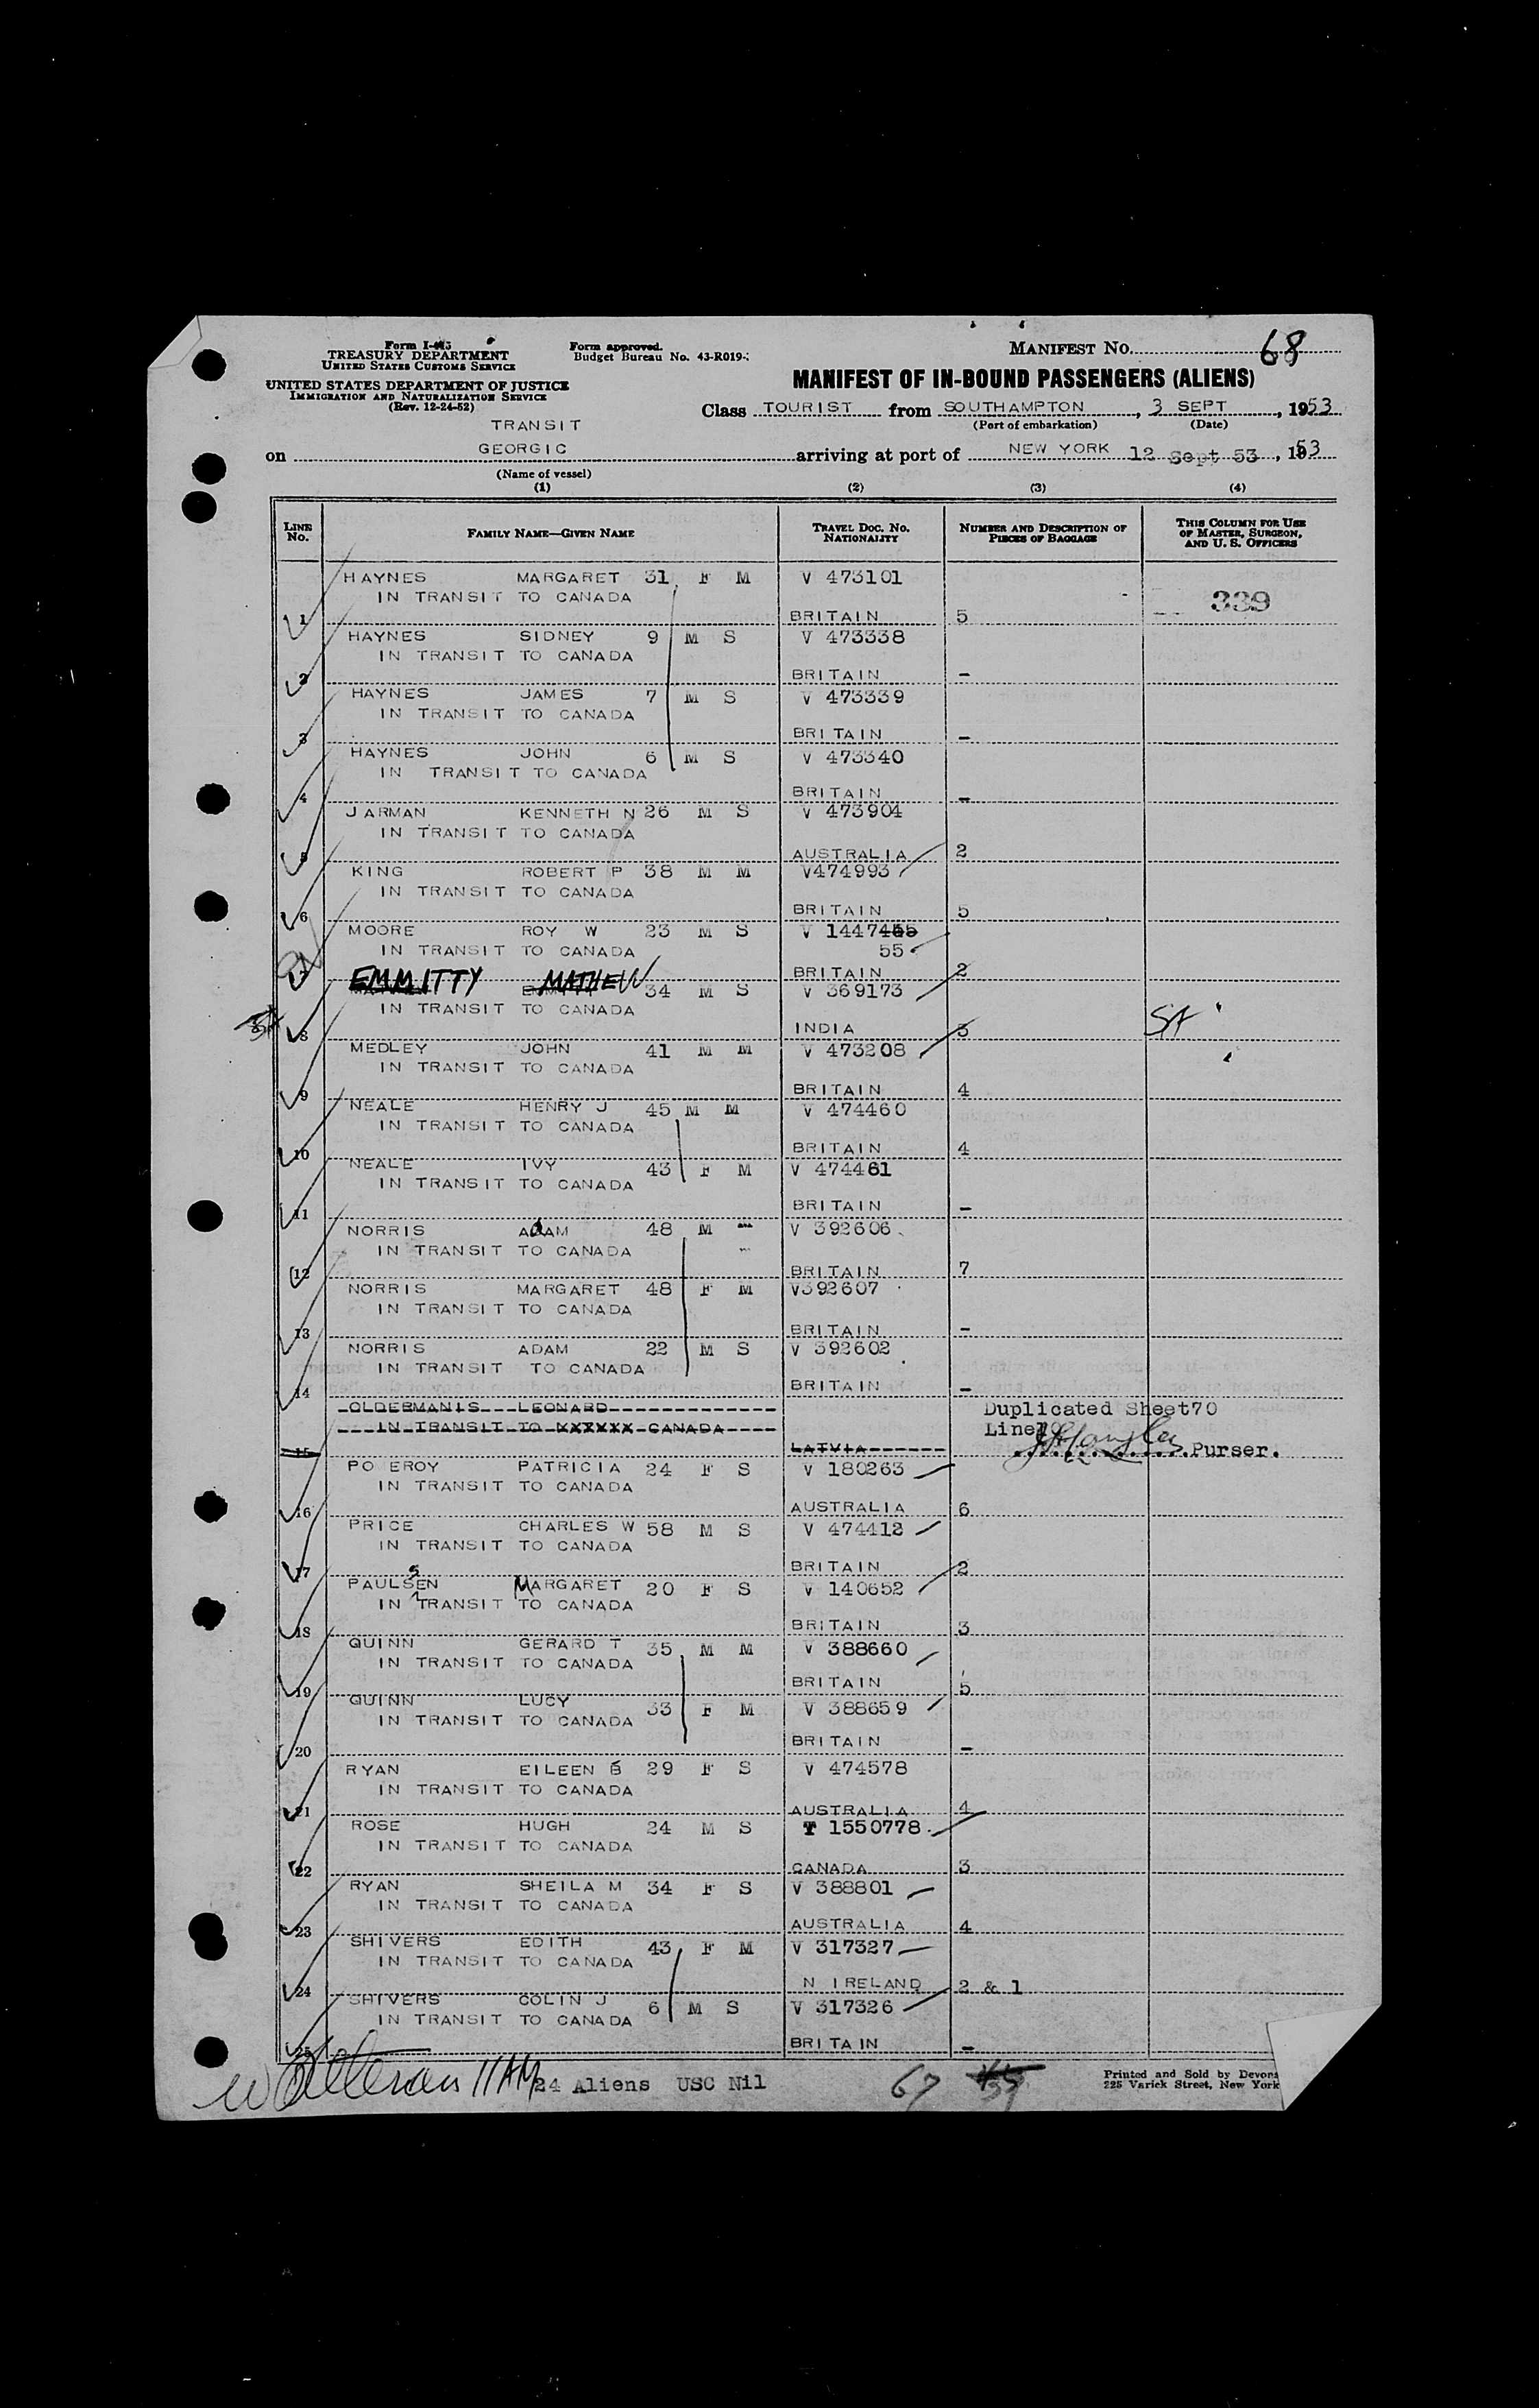 MANIFEST NO. 68
Form I-415
TREASURY DEPARTMENT
UNITED STATES CUSTOMS SERVICE
UNITED STATES DEPARTMENT OF JUSTICE
IMMIGRATION AND NATURALIZATION SERVICE
(Rev. 12-24-52)
Form approved.
Budget Bureau No. 43-R019-
MANIFEST OF IN-BOUND PASSENGERS (ALIENS)
Class TOURIST from SOUTHAMPTON, 3 SEPT, 1953
(Port of embarkation) (Date)
TRANSIT
on GEORGIC arriving at port of NEW YORK 12 Sept 53, 1953
(Name of vessel)
(1) (2) (3) (4)
LINE No. FAMILY NAME—GIVEN NAME TRAVEL DOC. NO. NATIONALITY NUMBER AND DESCRIPTION OF PIECES OF BAGGAGE THIS COLUMN FOR USE OF MASTER, SURGEON, AND U. S. OFFICERS
HAYNES MARGARET 31 F M V 473101
IN TRANSIT TO CANADA 339
1 BRITAIN 5
HAYNES SIDNEY 9 M S V 473338
IN TRANSIT TO CANADA
2 BRITAIN –
HAYNES JAMES 7 M S V 473339
IN TRANSIT TO CANADA
3 BRITAIN –
HAYNES JOHN 6 M S V 473340
IN TRANSIT TO CANADA
4 BRITAIN –
JARMAN KENNETH N 26 M S V 473904
IN TRANSIT TO CANADA
5 AUSTRALIA 2
KING ROBERT P 38 M M V474993
IN TRANSIT TO CANADA
6 BRITAIN 5
MOORE ROY W 23 M S V 1447455
IN TRANSIT TO CANADA 55
7 BRITAIN 2
EMMITTY MATHEW 34 M S V 369173
IN TRANSIT TO CANADA
8 INDIA 3 SA
MEDLEY JOHN 41 M M V 473208
IN TRANSIT TO CANADA
9 BRITAIN 4
NEALE HENRY J 45 M M V 474460
IN TRANSIT TO CANADA
10 BRITAIN 4
NEALE IVY 43 F M V 474461
IN TRANSIT TO CANADA
11 BRITAIN –
NORRIS ADAM 48 M V 392606
IN TRANSIT TO CANADA
12 BRITAIN 7
NORRIS MARGARET 48 F M V392607
IN TRANSIT TO CANADA
13 BRITAIN –
NORRIS ADAM 22 M S V 392602
IN TRANSIT TO CANADA
14 BRITAIN –
OLDERMANIS LEONARD Duplicated Sheet70
IN TRANSIT TO XXXXXX CANADA Line
15 LATVIA Purser.
PO EROY PATRICIA 24 F S V 180263
IN TRANSIT TO CANADA
16 AUSTRALIA 6
PRICE CHARLES W 58 M S V 474412
IN TRANSIT TO CANADA
17 BRITAIN 2
PAULSEN MARGARET 20 F S V 140652
IN TRANSIT TO CANADA
18 BRITAIN 3
QUINN GERARD T 35 M M V 388660
IN TRANSIT TO CANADA
19 BRITAIN 5
QUINN LUCY 33 F M V 388659
IN TRANSIT TO CANADA
20 BRITAIN –
RYAN EILEEN 29 F S V 474578
IN TRANSIT TO CANADA
21 AUSTRALIA 4
ROSE HUGH 24 M S T 1550778
IN TRANSIT TO CANADA
22 CANADA 3
RYAN SHEILA M 34 F S V 388801
IN TRANSIT TO CANADA
23 AUSTRALIA 4
SHIVERS EDITH 43 F M V 317327
IN TRANSIT TO CANADA
24 N IRELAND 2 & 1
SHIVERS COLIN J 6 M S V 317326
IN TRANSIT TO CANADA
25 BRITAIN –
11 AM 24 Aliens USC Nil 67
Printed and Sold by Devons
225 Varick Street, New York